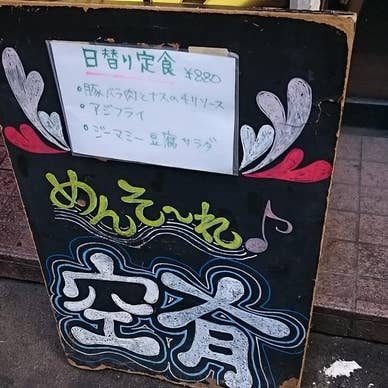 日替り定食 ¥880
・豚バラ肉とナスのチリソース
・アジフライ
・ジーマミー豆腐サラダ
めんそ〜れ♪
空肴